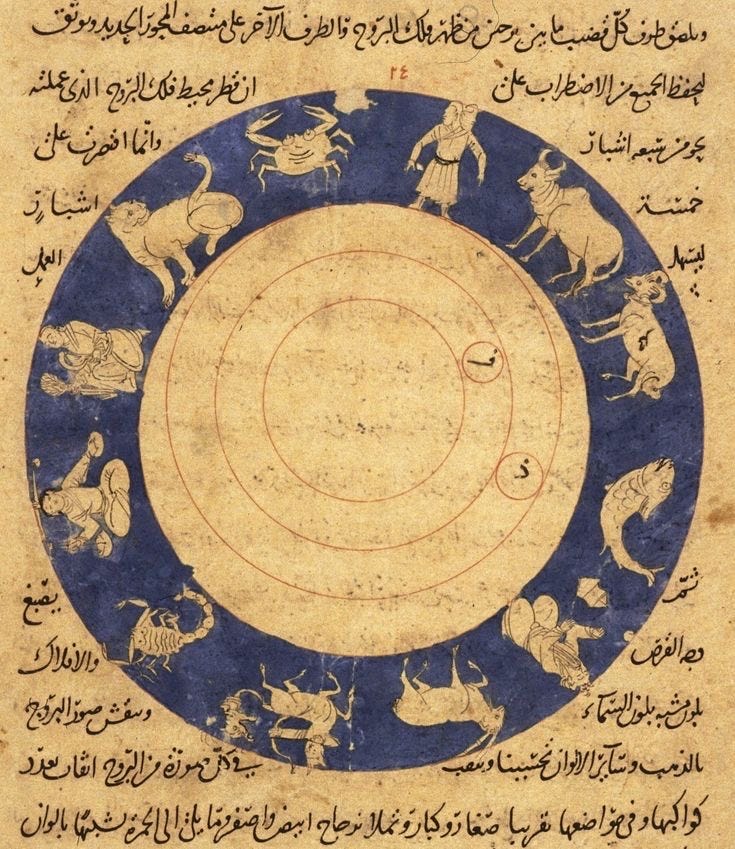 ويلصق طرف كل قضيب مابين برجين من ظهر فلك البروج والطرف الآخر على منتصف المحور الحديد ويوثق
٢٤
ليحفظ الجميع من الاضطراب على ان قطر محيط فلك البروج الذى عملته
نحو من سبعه اشبار وانما اقتصرت على
خمسة اشبار
ليسهل العمل
ثم يصبغ
وجه القرص والافلاك
بلون مشبه بلون السماء وينقش صور البروج
بالذهب وسائر الالوان تحسينا ويثقب في كل صورة من البروج اثقاب بعدد
كواكبها وفي مواضعها تقريبا صغار وكبار وتملا زجاج ابيض واصفر وما الى الحمرة تشبيها بالوان